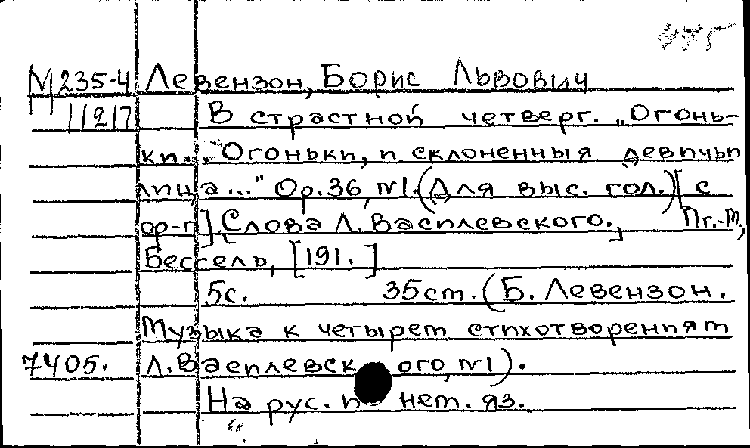 М235-4 Левензон, Борис Львович
11217 В страстной четверг. „Огонь-
ки... "Огоньки, и склоненныя девичьи
лица..." Op.36, №1. (Для выс. гол.) [с
ор-п]. [Слова Л. Василевского.] Пг.-М,
Бессель, [191. ]
5с. 35cm. (Б. Левензон.
Музыка к четырем стихотворениям
7405. Л. Василевского, №1).
На рус. и нем. яз.